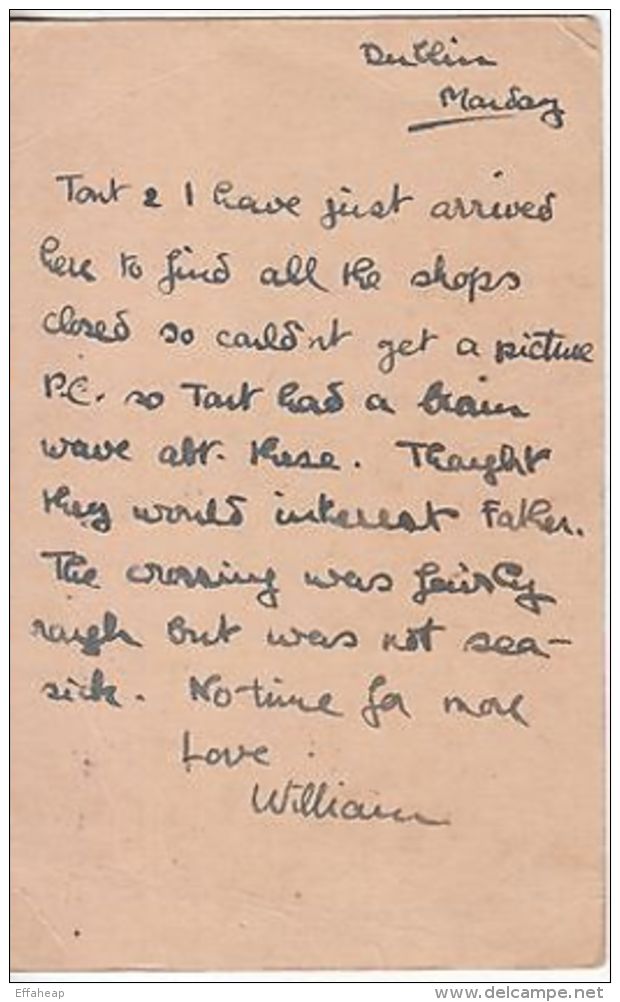 Dublin
Monday
Tout & I have just arrived
here to find all the shops
closed so couldn't get a picture
P.C. so Tout had a brain
wave abt. these. Thought
they would interest Father.
The crossing was fairly
rough but was not sea-
sick. No time for more
Love
William
Effaheap
www.delcampe.net